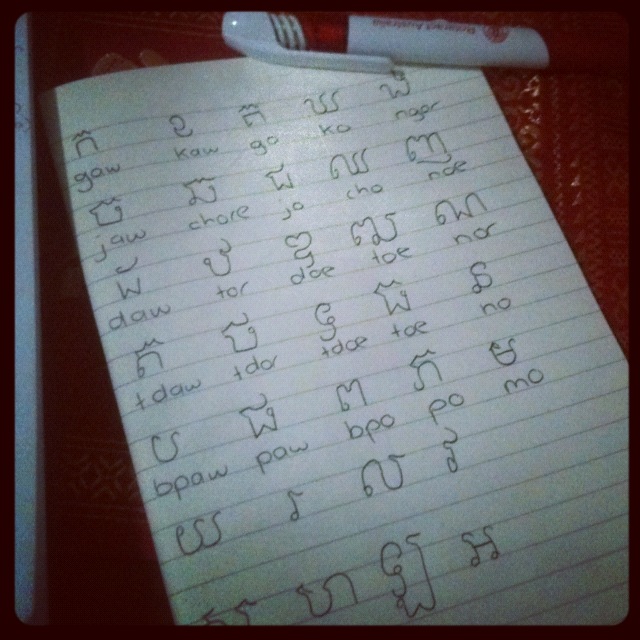 Dotmart Australia
ក ខ គ ឃ ង
gaw kaw go ko ngor
ច ឆ ជ ឈ ញ
jaw chore jo cho noe
ដ ឋ ឌ ឍ ណ
daw tor doe toe nor
ត ថ ទ ធ ន
tdaw tdor tdoe toe no
ប ផ ព ភ ម
bpaw paw bpo po mo
យ រ ល វ
ស ហ ឡ អ